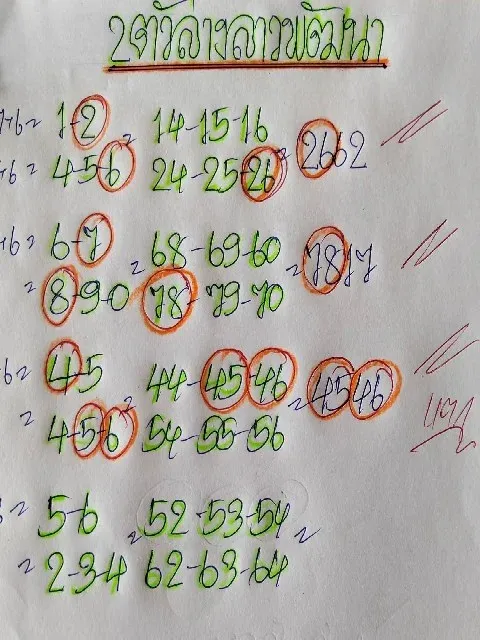 2ตัวล่างลาวพัฒนา
+6= 1-2 = 14-15-16 = 2662
+6= 4-5-6 24-25-26
+6= 6-7 = 68-69-60 = 7817
= 8-9-0 78-79-70
6= 4-5 = 44-45-46 = 4546
= 4-5-6 54-55-56
= 5-6 = 52-53-54 =
= 2-3-4 62-63-64